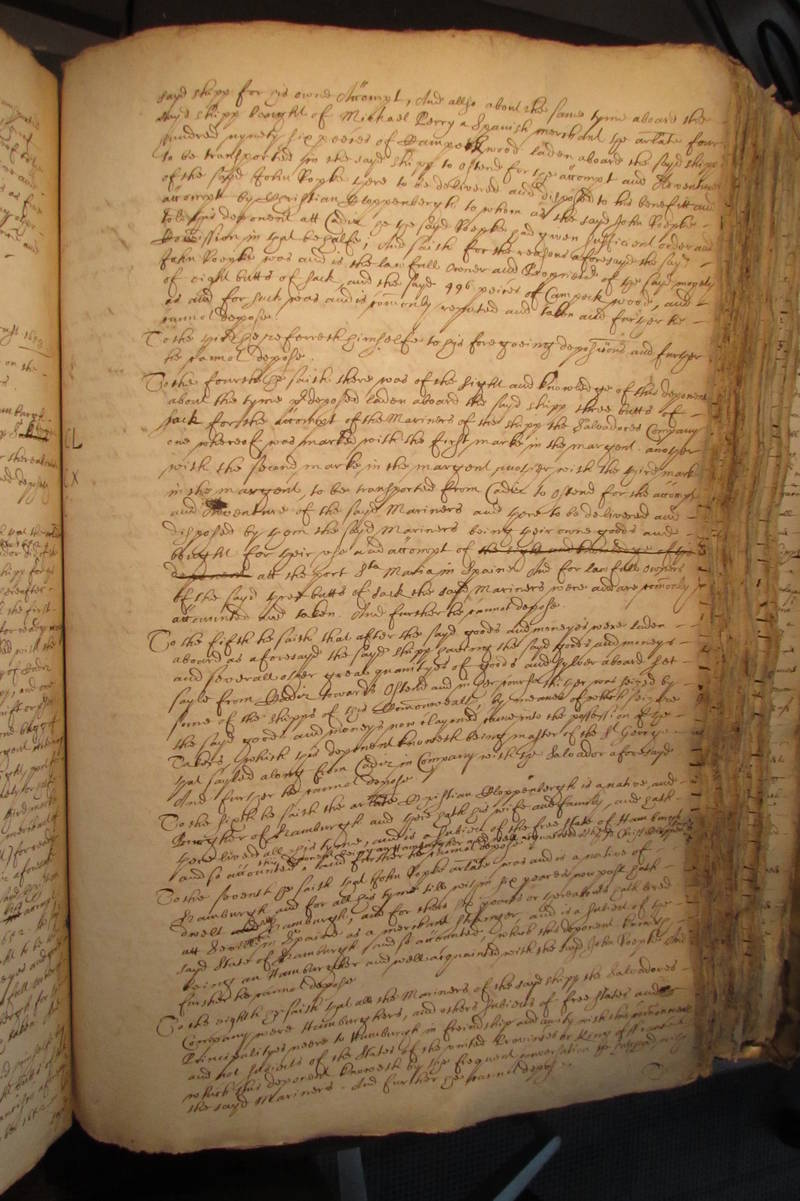 sayd shipp for his owne Accompt, And allso about the same tyme aboard the
sayd shipp bought of Michael Perry a Spanish merchant the arlate four
hundred nynety six peeces of Campeche wood laden aboard the sayd shipp
to be transported in the sayd shipp to Ostend for the accompt and Adventure
of the sayd John Popke there to be delivered and disposed to his benefitt and
accompt by Christian Cloppenburgh to whom as the sayd John Popke
told this deponent att Cadiz he the sayd Popke had given sufficient order and
Comission in that behalfe, And saith for the reasons aforesayd the sayd
John Popke was and is the lawfull Owner and Proprietor of the sayd moyety
of eight butts of sack, and the sayd 496 peices of Campeck wood, and
as and for such was and is comonly reputed and taken and further he
cannot depose.
To the third he referreth himselfe to his foregoeing depositions and further
he cannot depose.
To the fourth he saith there was of the sight and knowledge of this deponent
about the tyme predeposed laden aboard the sayd shipp three butts of
sack for the Accompt of the Mariners of the shipp the Salvadores Company
one whereof was marked with the first marke in the margent another
CL
with the second marke in the margent another with the third mark
CX
in the margent, to be transported from Cadiz to Ostend for the accompt
and Adventure of the sayd Mariners and there to be delivered and
disposed by them the sayd Mariners being their owne goods and
bought for their use and accompt of the sight and knowledge of this
deponent att the port Sta Maria in Spaine And for lawfull owners
of the sayd three butts of sack the sayd Mariners were and are comonly
accounted and taken. And further he cannot depose.
To the fifth he saith that after the sayd goods and moneyes were laden
aboard as aforesayd the sayd shipp having the sayd goods and moneys
and severall other great quantityes of goods and sylver aboard set
sayle from Cadiz towards Ostend and in her course thither was seized by
some of the shipps of this Comonwealth by meanes of which seizure
the sayd goods and moneys now clayned came into the possession of the
Takers, which this deponent knoweth being master of the St George
that sayled along from Cadiz in Company with the Salvador aforesayd
And further he cannot depose.
To the sixth he saith the arlate Christian Cloppenburgh is a native and
Burgher of Hamburgh and there hath his wife and family, and hath
there lived all his tyme, and is a subiect of the free State of Hamburgh
and so accounted, And further he cannot depose
To the seventh he saith that John Popke arlate was and is a native of
Hamburgh and for all his tyme till within six yeares now past hath
dwelt att Hamburgh, and for those six yeares or thereabouts hath lived
att Sevill in Spaine as a merchant stranger, and is a subiect of the
sayd State of Hamburgh and so accounted which this deponent knoweth
being an Hamburgher and well acquainted with the sayd John Popke And
further he cannot depose
To the eighth he saith that all the Mariners of the sayd shipp the Salvadores
Company were Hamburghers, and others subiects of free States and
Principalityes neere to Hamburgh in freindship and amity with this
and not subiects of the States of the united Provinces or King of
which this deponent knoweth by the frequent conversation he had with
the sayd Mariners. And further he cannot depose.